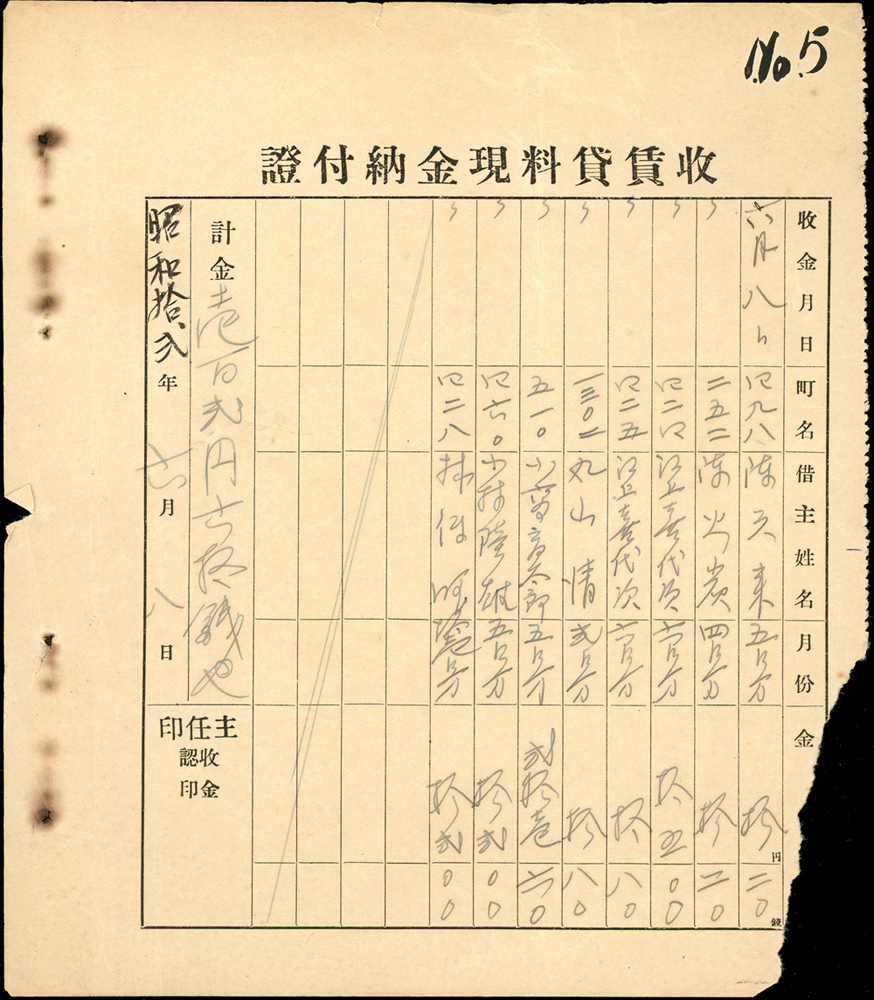 No. 5
收賃貸料現金納付證
收金月日 町名 借主姓名 月份 金 円 錢
六月八日 四九八 陳 來 五月分 拾 二〇
〃 二五二 陳火炭 四月分 拾 二〇
〃 四二四 江上喜代次 六月分 拾五 〇〇
〃 四二五 江上喜代次 六月分 拾 八〇
〃 一三〇二 丸山清 弐月分 拾 八〇
〃 五一〇 小 太郎 五月分 弐拾壱 六〇
〃 四六〇 小林陸雄 五月分 拾弐 〇〇
〃 四二八 林 月分 拾弐 〇〇
計金壱百弐円六拾錢也
昭和拾弐年六月八日
主任印
認收
印金